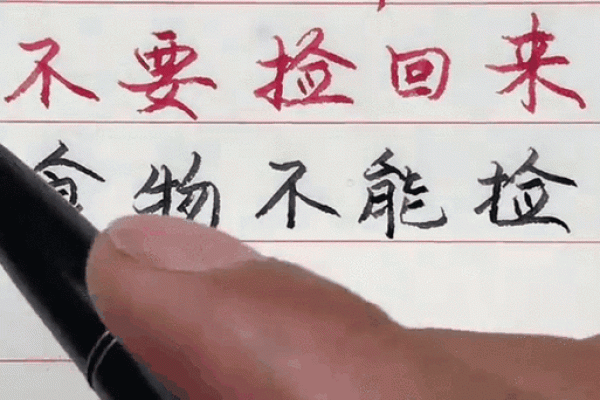 不要捡回来
食物不能捡